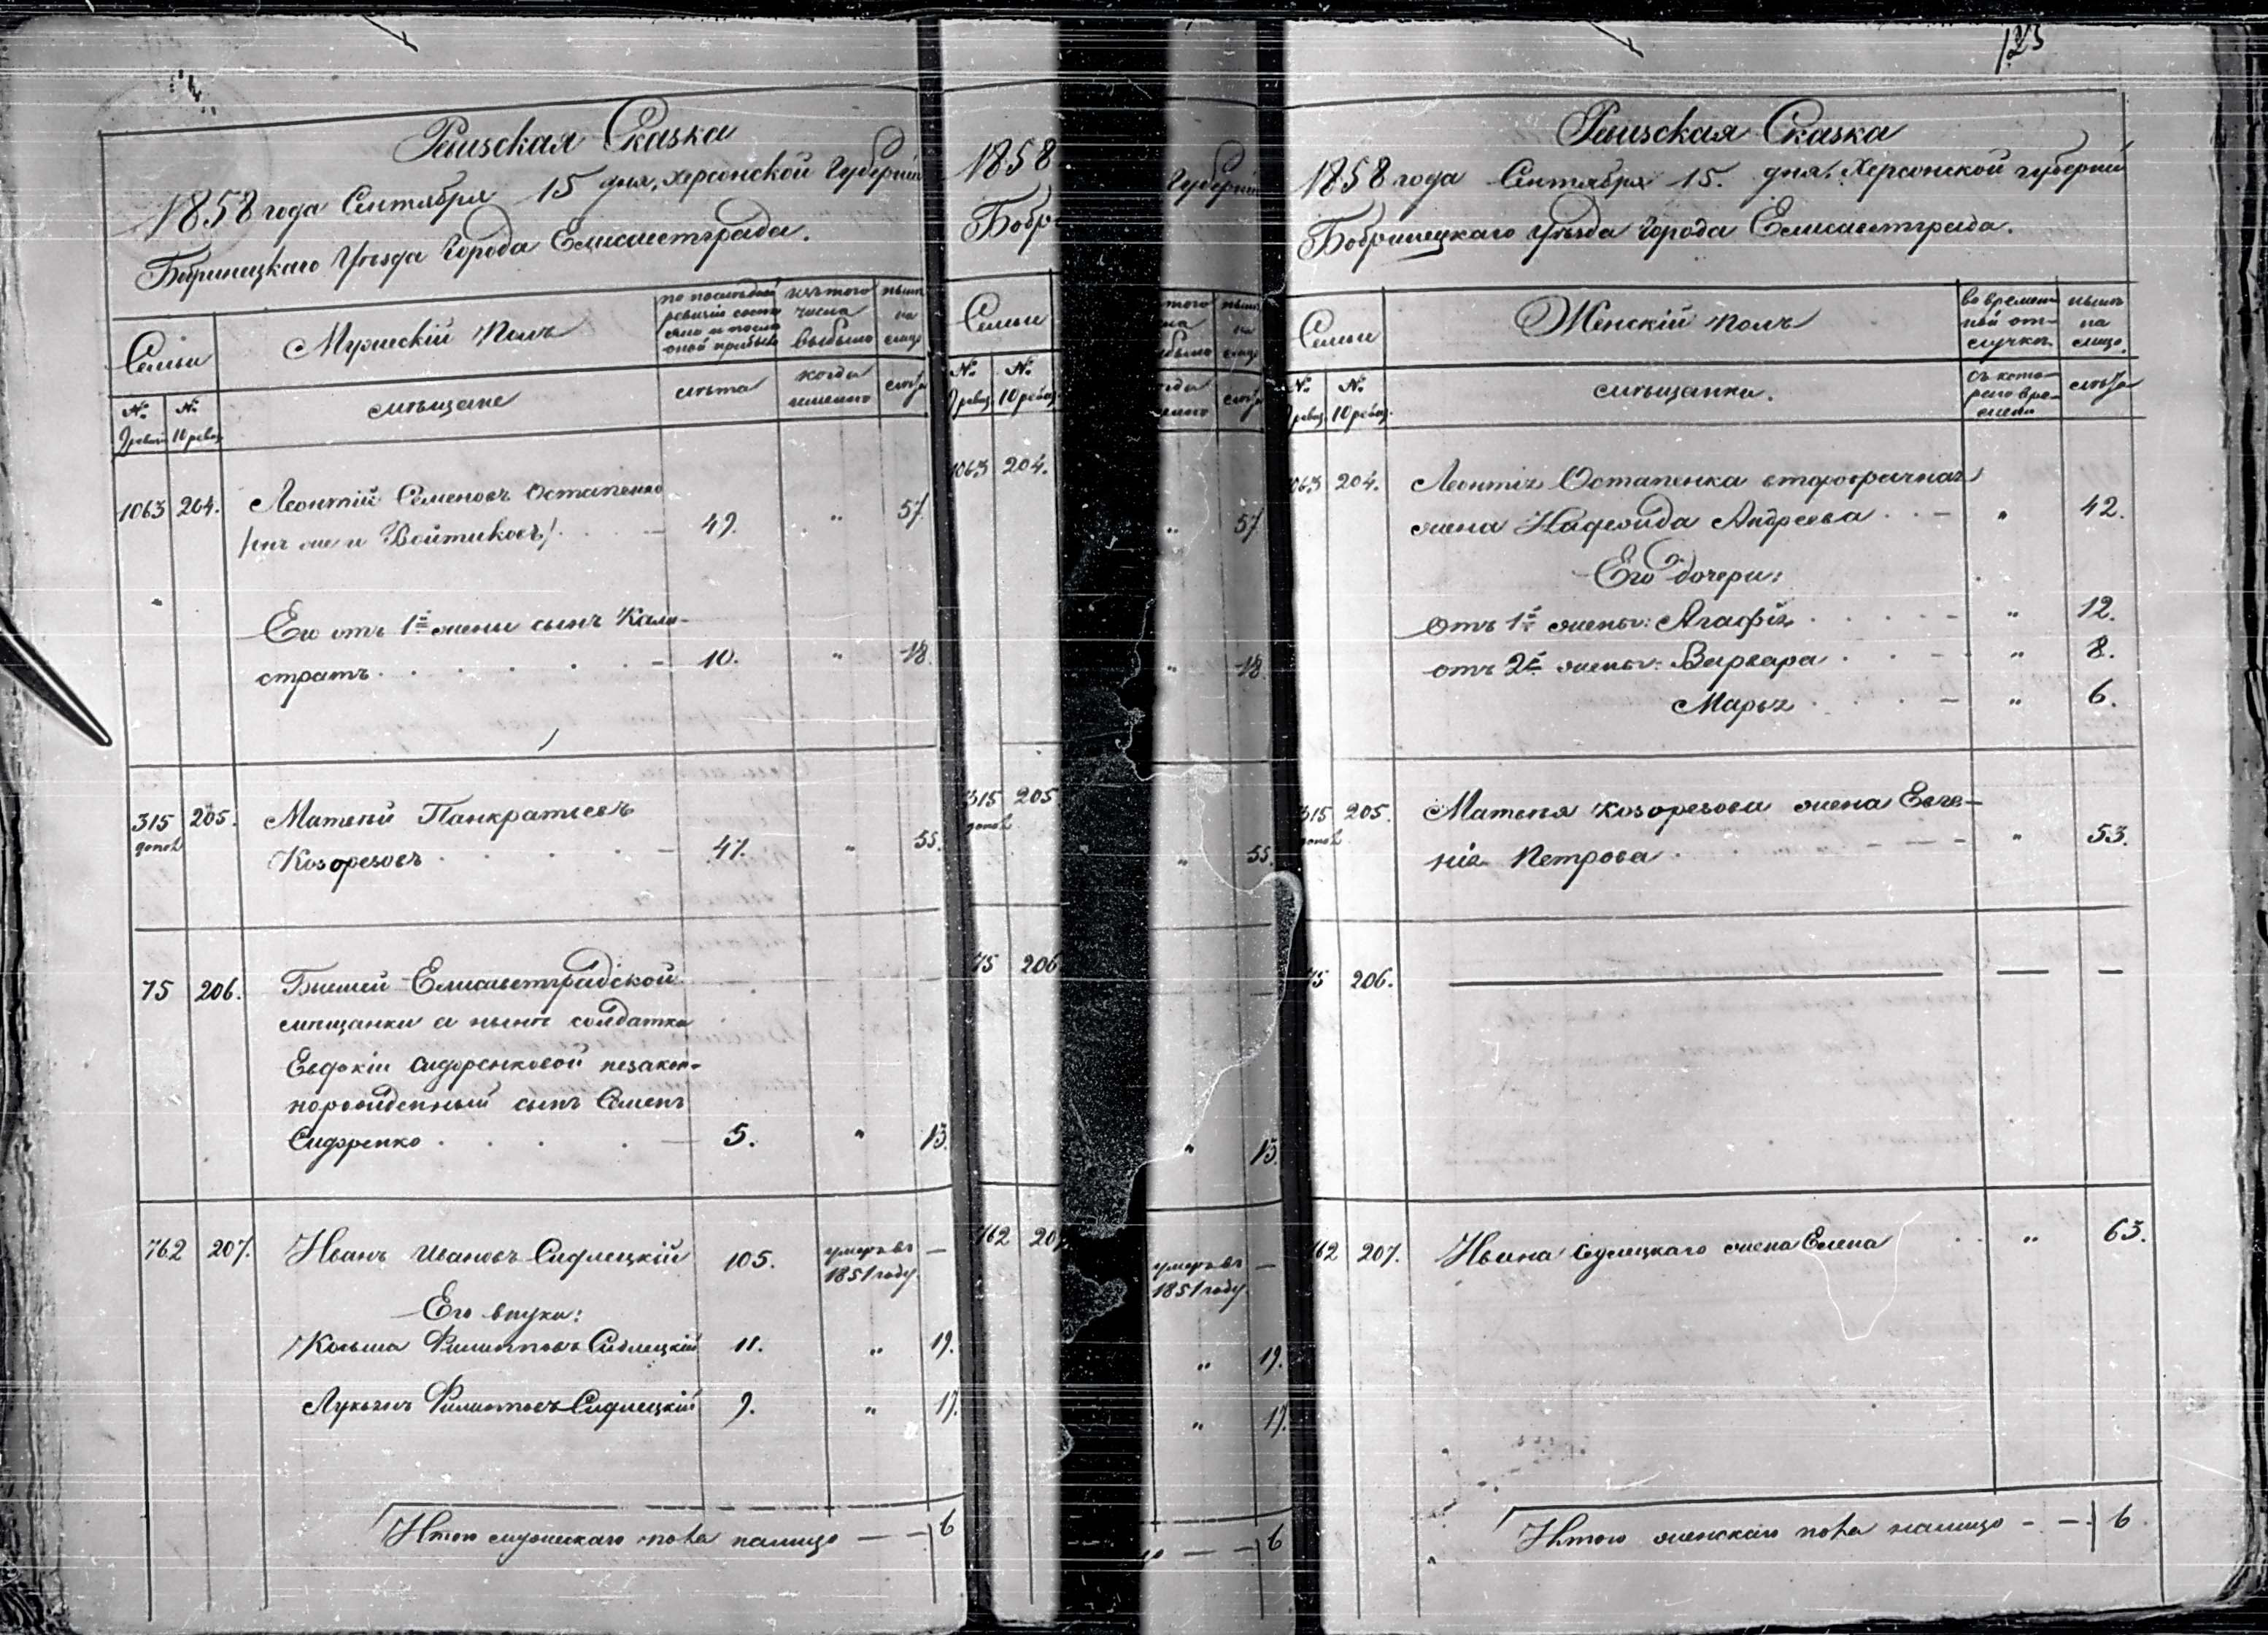 Ревизская Сказка
1858 года Сентября 15 дня, Херсонской Губернии
Бобринецкаго Уезда Города Елисаветграда.
Семьи
Мужескій Полъ
по последней
ревизіи состо
яло и после
оной прибыло
изъ того
числа
выбыло
ныне
на
лицо
№
9 ревиз
№
10 ревиз
мещане
лета
когда
именно
лета
1063 204. Леонтій Семеновъ Остапенко
/онъ же и Войтиковъ/. 49. " 57.
"
Его отъ 1й жены сынъ Кали-
стратъ. 10. " 18.
315 205. Матвей Панкратьевъ
допол Козорезовъ 47. " 55.
75 206. Бывшей Елисаветградской
мещанки а ныне солдатки
Евдокіи Сидоренковой незакон-
норожденный сынъ Семенъ
Сидоренко 5. " 13.
762 207. Иванъ Ивановъ Сидлецкій 105. умеръ въ —
1851 году
Его внуки:
Козьма Филиповъ Сидлецкій 11. " 19.
Лукьянъ Филиповъ Сидлецкій 9. " 17.
Итого мужескаго пола налицо — — 6
1858
Бобри
Семьи
№
9 ревиз.
№
10 ревиз.
1063 204.
315 205
допол
75 206
762 207
Губерніи
того
на
было
ныне
на
лицо
лета
" 57.
" 18.
" 55.
" 13.
умеръ въ —
1851 году.
" 19.
" 17.
— — 6
123
Ревизская Сказка
1858 года Сентября 15. дня. Херсонской губерніи
Бобринецкаго Уезда Города Елисаветграда.
Семьи
Женскій Полъ
во времен-
ной от-
лучке
ныне
на
лицо.
№
9 ревиз.
№
10 ревиз.
мещанки.
съ кото-
раго вре-
мени
лета
1063 204. Леонтія Остапенка второбрачная
жена Надежда Андреева " 42.
Его дочери:
отъ 1й жены: Агафія " 12.
отъ 2й жены: Варвара " 8.
Марья " 6.
315 205. Матвея Козорезова жена Евге-
допол нія Петрова " 53.
75 206. — — —
762 207. Ивана Сидлецкаго жена Елена " 63.
Итого женскаго пола налицо - — 6